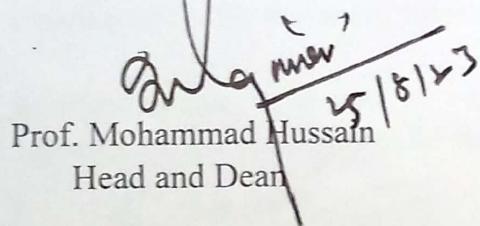 25/8/23
Prof. Mohammad Hussain
Head and Dean